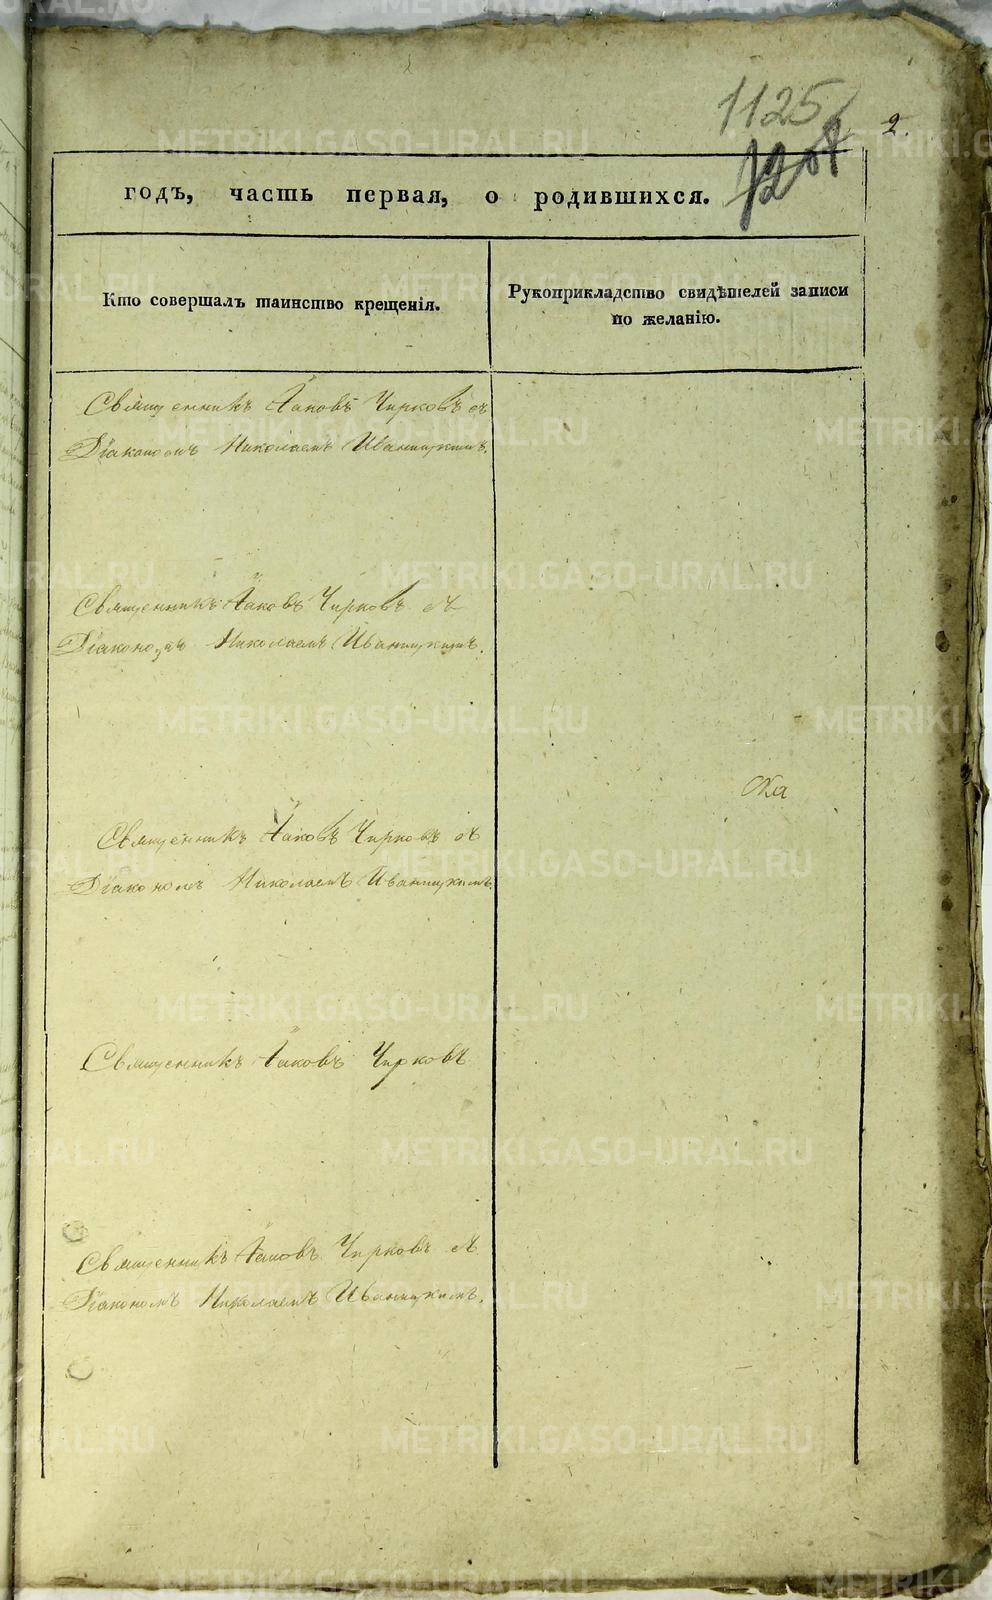 1125
2.
годъ, часть первая, о родившихся.
Кто совершалъ таинство крещенія.
Рукоприкладство свидѣтелей записи
по желанію.
Священникъ Іаковъ Чирковъ съ
Діакономъ Николаемъ Иваницкимъ.
Священникъ Іаковъ Чирковъ съ
Діакономъ Николаемъ Иваницкимъ.
Священникъ Іаковъ Чирковъ съ
Діакономъ Николаемъ Иваницкимъ.
Священникъ Іаковъ Чирковъ
Священникъ Іаковъ Чирковъ съ
Діакономъ Николаемъ Иваницкимъ.
METRIKI.GASO-URAL.RU